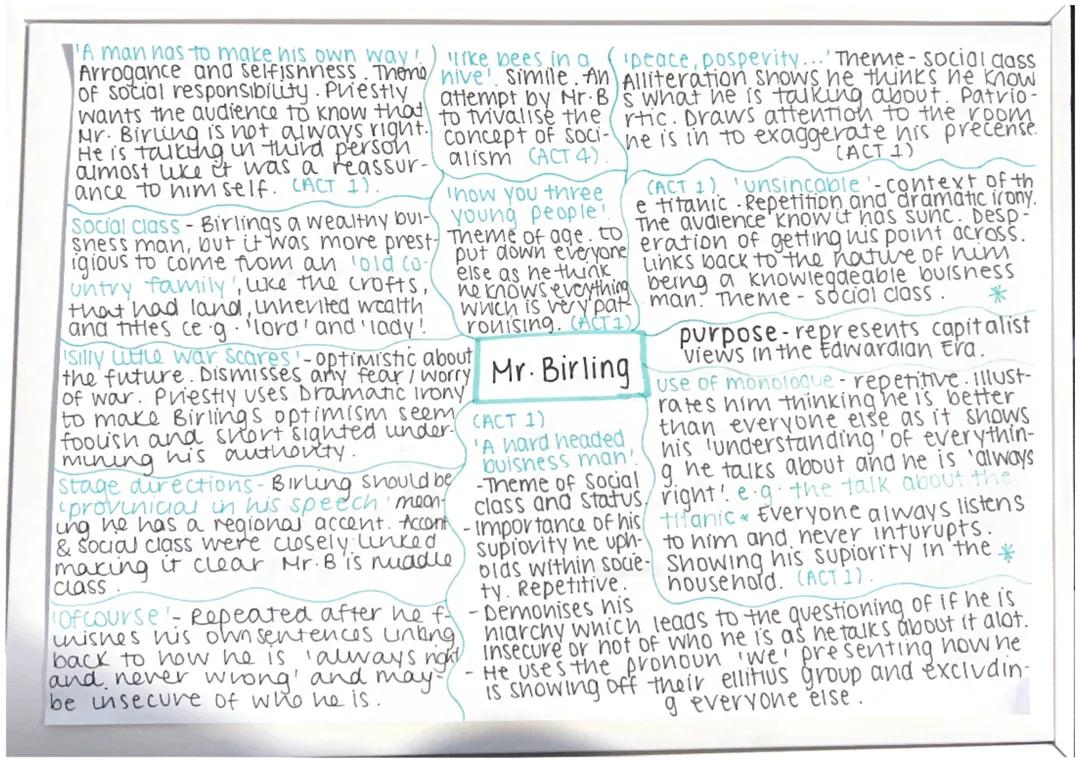 'A man has to make his own way'.
Arrogance and selfishness. Theme
of social responsibility. Priestly
wants the audience to know that
Mr. Birling is not always right.
He is talking in third person
almost like it was a reassur-
ance to himself. (ACT 1).
'like bees in a
hive'. Simile. An
attempt by Mr. B
to trivalise the
concept of soci-
alism (ACT 4).
'peace, posperity...' Theme - social class
Alliteration shows he thinks he know
s what he is talking about. Patrio-
rtic. Draws attention to the room
he is in to exaggerate his precense.
(ACT 1)
Social class - Birlings a wealthy bui-
sness man, but it was more prest-
igious to come from an 'old co-
untry family', like the crofts,
that had land, inherited wealth
and titles (e.g. 'lord' and 'lady'.
'how you three
young people'.
Theme of age. to
put down everyone
else as he think
he knows evrything
which is very pat-
ronising. (ACT 1)
(ACT 1) 'unsincable' - context of th
e titanic. Repetition and dramatic irony.
The audience know it has sunc. Desp-
eration of getting his point across.
Links back to the nature of him
being a knowlegdeable buisness
man. Theme - social class. *
'silly little war scares' - optimistic about
the future. Dismisses any fear / worry
of war. Priestly uses Dramatic irony
to make Birlings optimism seem
foolish and short sighted under-
mining his authority.
Mr. Birling
purpose - represents capitalist
views in the Edwardian Era.
Stage directions - Birling should be
'provinicial in his speech' mean-
ing he has a regional accent. Accent
& social class were closely linked
making it clear Mr. B is middle
class.
(ACT 1)
'A hard headed
buisness man'.
- Theme of Social
class and status.
- Importance of his
supiovity he uph-
olds within socie-
ty. Repetitive.
- Demonises his
hiarchy which leads to the questioning of if he is
insecure or not of who he is as he talks about it alot.
- He uses the pronoun 'we' presenting how he
is showing off their ellitius group and excludin-
g everyone else.
use of monologue - repetitive. Illust-
rates him thinking he is better
than everyone else as it shows
his 'understanding' of everythin-
g he talks about and he is 'always
right'. e.g. the talk about the
titanic * Everyone always listens
to him and never inturupts.
Showing his supiority in the *
household. (ACT 1).
'Ofcourse' - Repeated after he f-
inishes his own sentences linking
back to how he is 'always right
and never wrong' and may
be insecure of who he is.